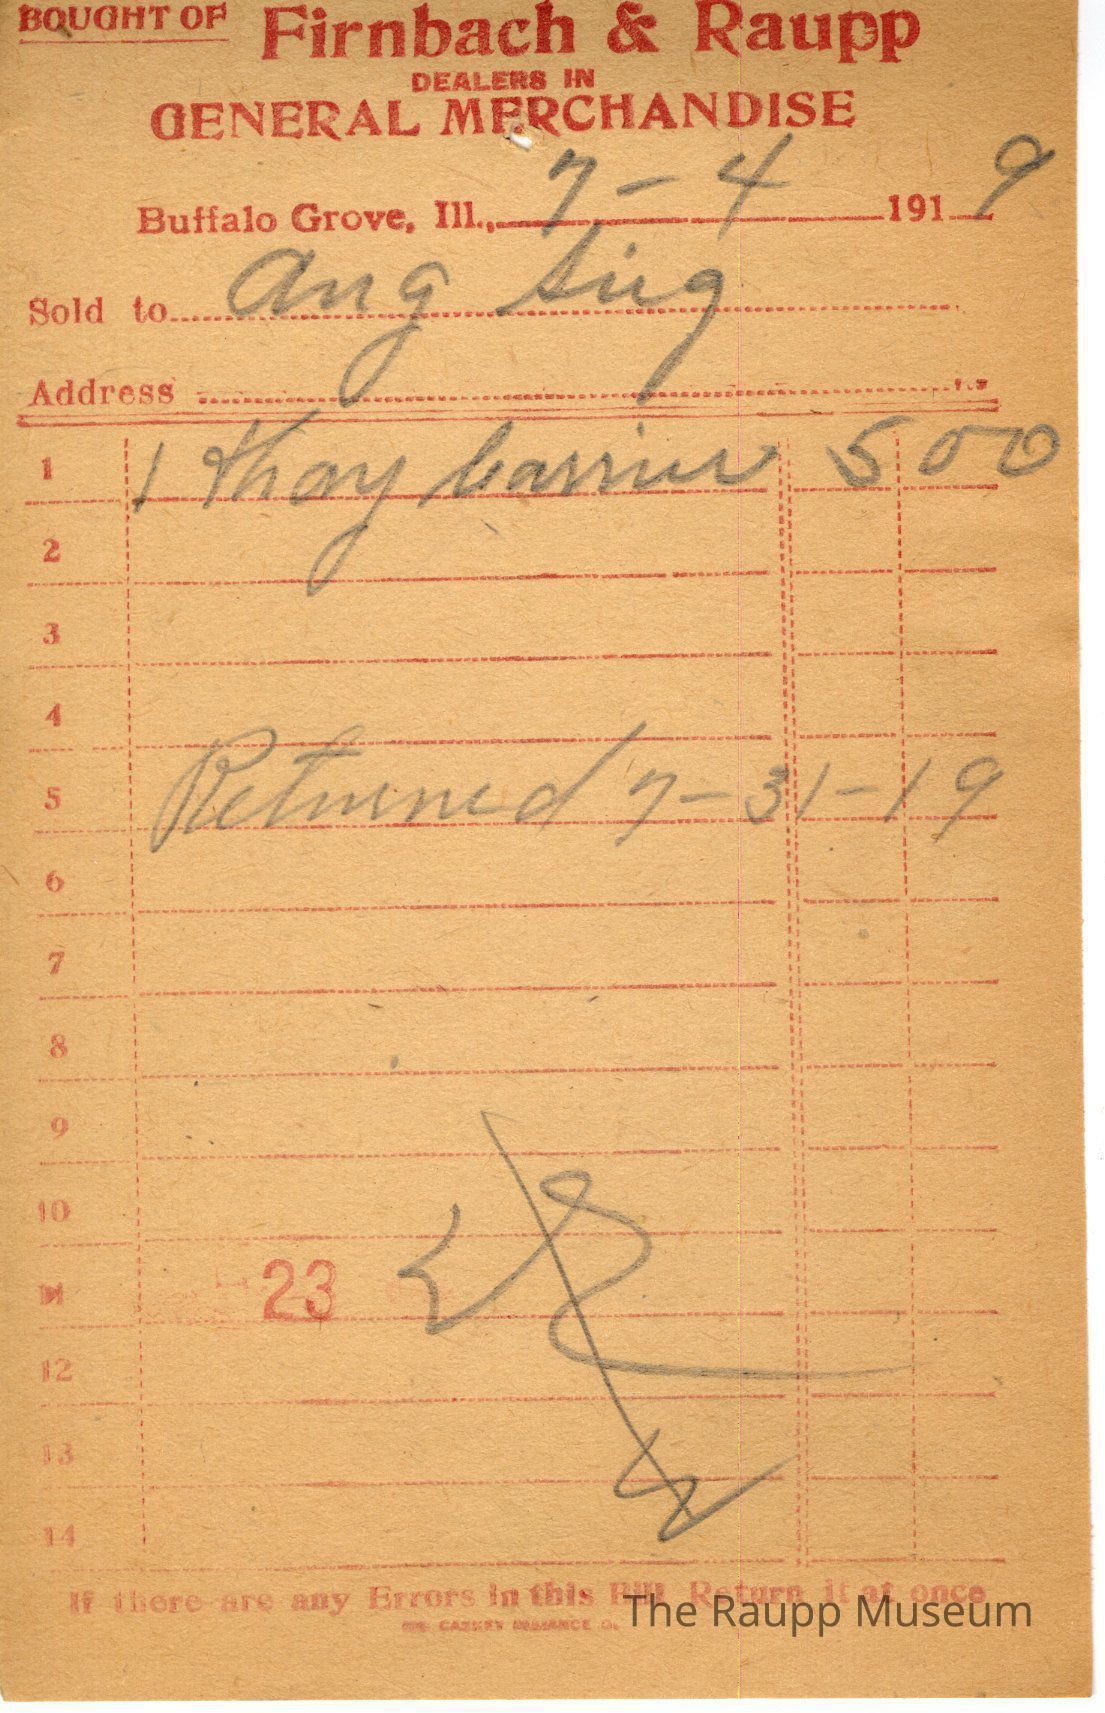 BOUGHT OF Firnbach & Raupp
DEALERS IN
GENERAL MERCHANDISE
Buffalo Grove, Ill., 7-4 1919
Sold to Aug
Address
1 1 Hay carrier 5 00
2
3
4
5 Returned 7-31-19
6
7
8
9
10
23
12
13
14
If there are any Errors in this Bill Return it at once
The Raupp Museum